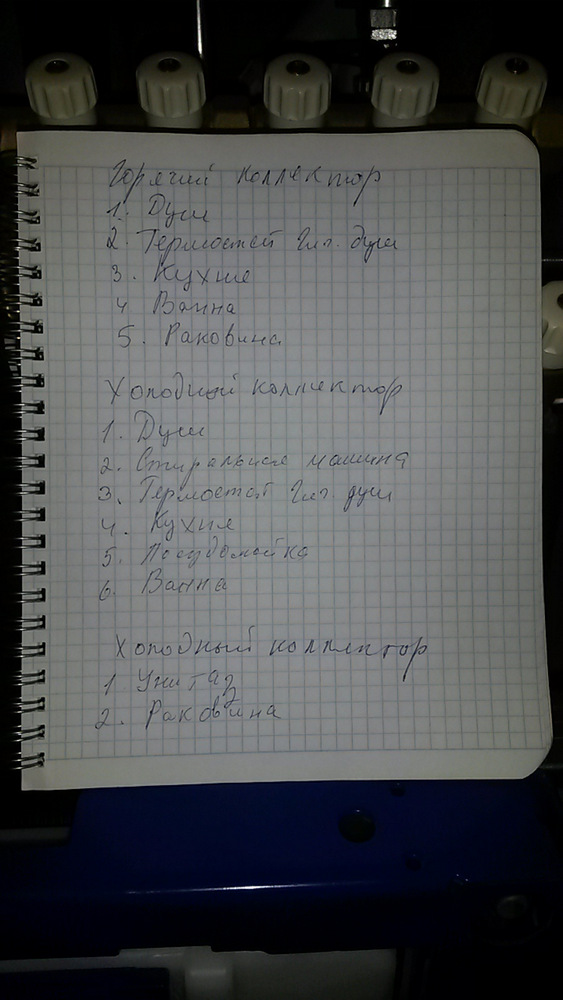 Горячий коллектор
1. Душ
2. Термостат гиг. душ
3. Кухня
4 Ванна
5. Раковина
Холодный коллектор
1. Душ
2. Стиральная машина
3. Термостат гиг. душ
4. Кухня
5. Посудомойка
6. Ванна
Холодный коллектор
1 Унитаз
2. Раковина